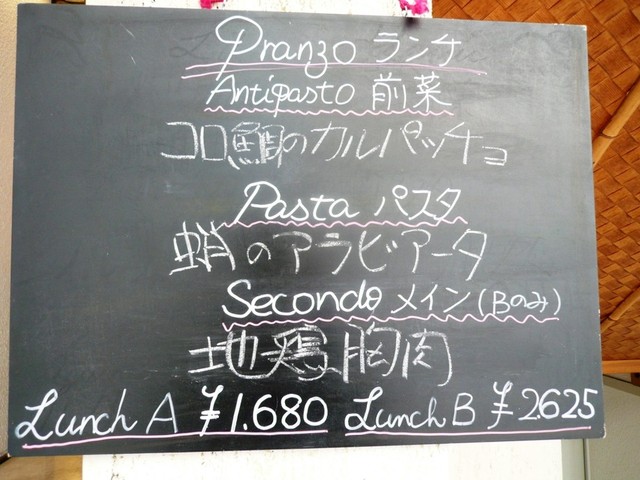 Pranzo ランチ
Antipasto 前菜
コロ鯛のカルパッチョ
Pasta パスタ
蛸のアラビアータ
Secondo メイン(Bのみ)
地鶏胸肉
Lunch A ¥1.680 Lunch B ¥2.625